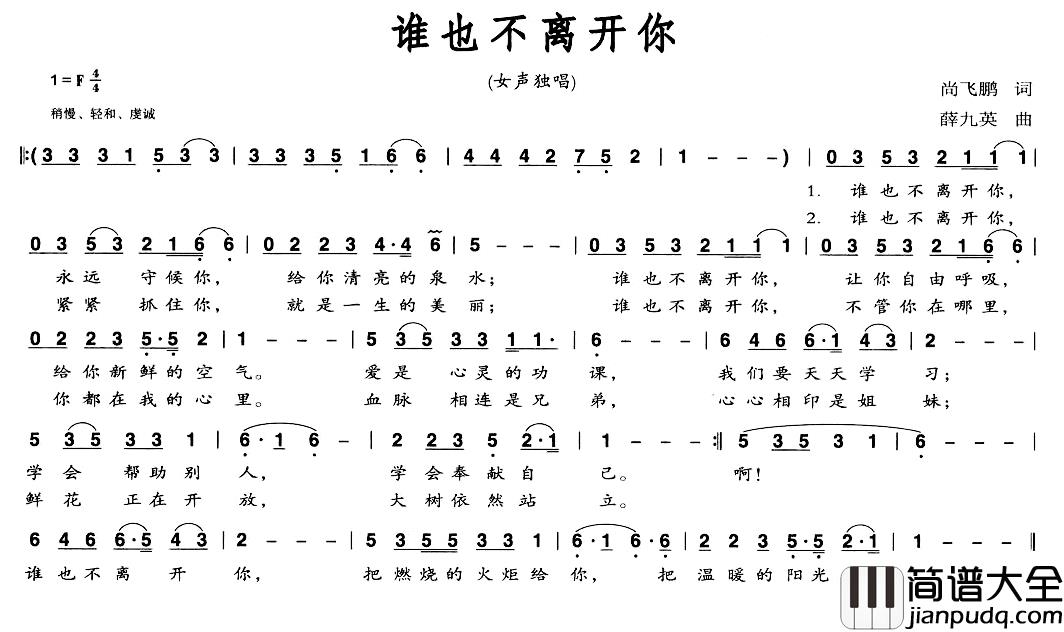 谁也不离开你
1=F 4/4
(女声独唱)
尚飞鹏 词
稍慢、轻和、虔诚
薛九英 曲
‖:(3 3 3 1 5 3 3 | 3 3 3 5 1 6 6 | 4 4 4 2 7 5 2 | 1 - - -) | 0 3 5 3 2 1 1 1 |
1. 谁也不离开你,
2. 谁也不离开你,
0 3 5 3 2 1 6 6 | 0 2 2 3 4·4 6 | 5 - - - | 0 3 5 3 2 1 1 1 | 0 3 5 3 2 1 6 6 |
永远 守候你, 给你清亮的泉水; 谁也不离开你, 让你自由呼吸,
紧紧 抓住你, 就是一生的美丽; 谁也不离开你, 不管你在哪里,
0 2 2 3 5·5 2 | 1 - - - | 5 3 5 3 3 1 1· | 6 - - - | 6 4 6 6·1 4 3 | 2 - - - |
给你新鲜的空气。 爱是 心灵的功课, 我们要天天学习;
你都在我的心里。 血脉 相连是兄弟, 心心相印是姐妹;
5 3 5 3 3 1 | 6·1 6 - | 2 2 3 5 2·1 | 1 - - - :‖ 5 3 5 3 1 | 6 - - - |
学会 帮助别人, 学会奉献自己。 啊!
鲜花 正在开放, 大树依然站立。
6 4 6 6·5 4 3 | 2 - - - | 5 3 5 5 3 3 1 | 6·1 6·6 | 2 2 3 5·5 2·1 | 1 - - - ‖
谁也不离开你, 把燃烧的火炬给你, 把温暖的阳光
简谱大全
jianpudq.com